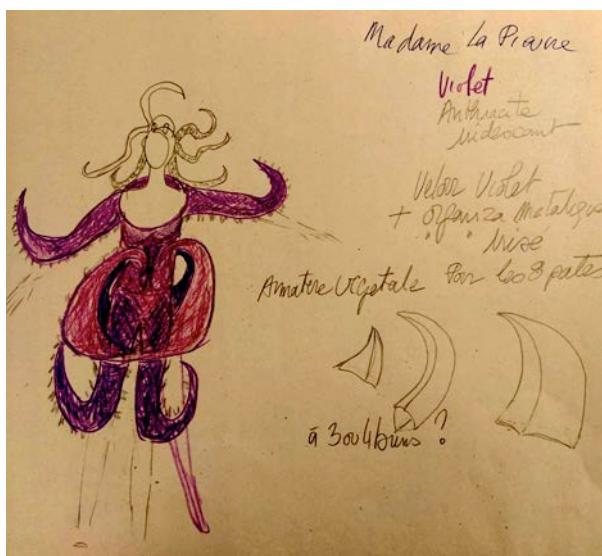 Madame La Pieuvre
Violet
Anthracite
iridescent
Velour Violet
+ organza Metalique
" " irisé
Armature Végétale Pour les 8 pates
à 3 ou 4 brins ?